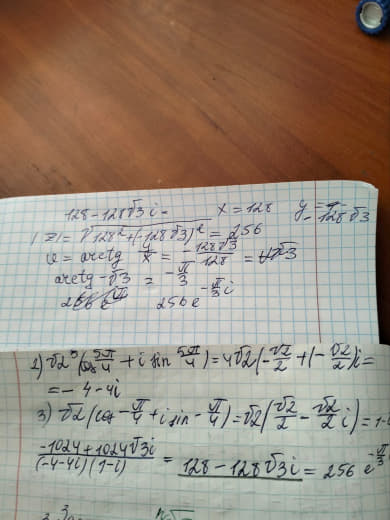 128-128√3 i = x = 128 y = -128√3
|z| = √128²+(-128√3)² = 256
φ = arctg y/x = -128√3/128 = -√3
arctg -√3 = -π/3
256 e^(-π/3 i)
2) √2⁵(cos 5π/4 + i sin 5π/4) = 4√2(-√2/2 + (-√2/2)i =
= -4-4i
3) √2(cos -π/4 + i sin -π/4) = √2(√2/2 - √2/2 i) = 1-
-1024+1024√3i/(-4-4i)(1-i) = 128-128√3i = 256 e^(-π/3